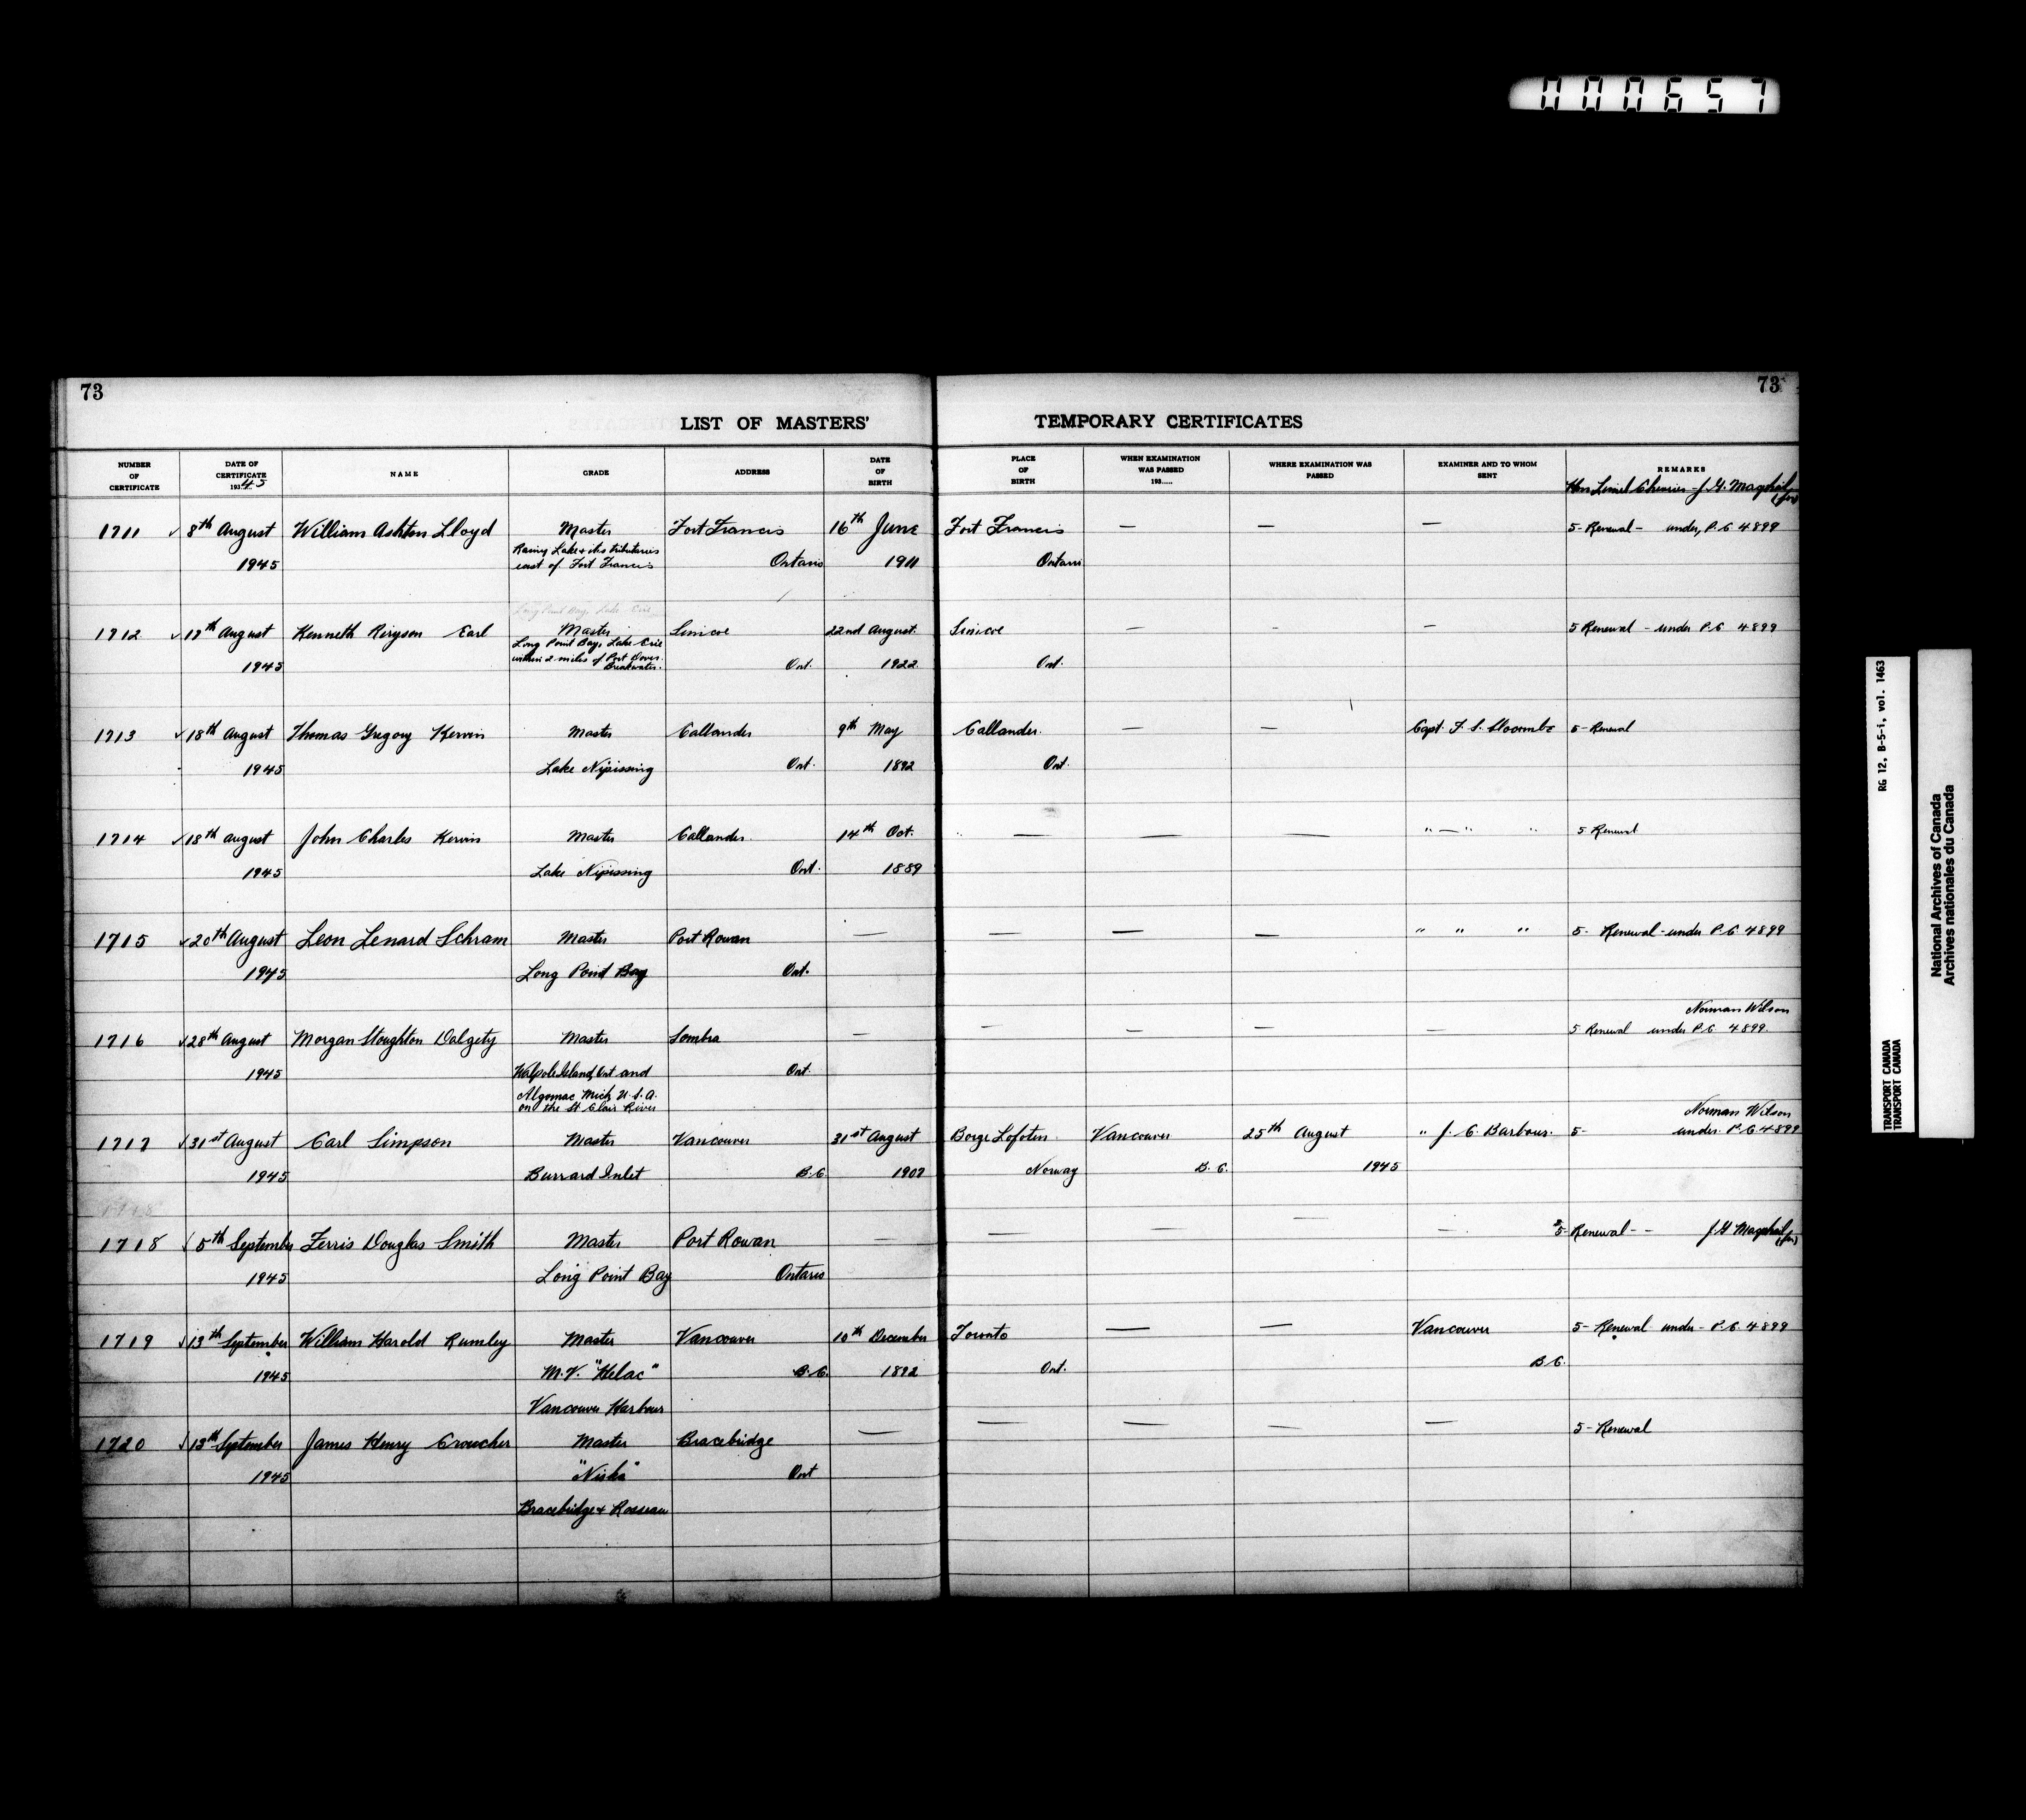 000657
73
73
LIST OF MASTERS' TEMPORARY CERTIFICATES
NUMBER OF CERTIFICATE
DATE OF CERTIFICATE 193 45
NAME
GRADE
ADDRESS
DATE OF BIRTH
PLACE OF BIRTH
WHEN EXAMINATION WAS PASSED 193.....
WHERE EXAMINATION WAS PASSED
EXAMINER AND TO WHOM SENT
REMARKS
Hon Lionel Chevrier - J. G.
1711 ✓ 8th August William Ashton Lloyd Master Fort Francis 16th June Fort Francis — — — 5- Renewal - under, P.C 4899
Rainy Lake + its tributaries
1945 east of Fort Francis Ontario 1911 Ontario
Long Point Bay, Lake Erie
1712 ✓ 17th August Kenneth Earl Master Simcoe 22nd August. Simcoe — - — 5 Renewal - under P.C 4899
Long Point Bay, Lake Erie
1945 within 2 miles of Port Dover Breakwater. Ont. 1922 Ont.
1713 ✓ 18th August Thomas Gregory Kervin Master Callander 9th May Callander. — — Capt. F. S. Slocombe 5- Renewal
1945 Lake Nipissing Ont. 1892 Ont.
1714 ✓ 18th August John Charles Kervin Master Callander 14th Oct. " — — — " — " " 5 Renewal
1945 Lake Nipissing Ont. 1889
1715 ✓ 20th August Leon Lenard Schram Master Port Rowan — — — — " " " 5- Renewal - under P.C 4899
1945 Long Point Bay Ont.
Norman Wilson
1716 ✓ 28th August Morgan Stoughton Dalgety Master Sombra — — — — — 5 Renewal under P.C 4899.
1945 Walpole Island, Ont and Ont.
Algomac Mich U.S.A.
on the St Clair River
Norman Wilson
1717 ✓ 31st August Carl Simpson Master Vancouver 31st August Borge Lofoten Vancouver 25th August " J. C. Barbour. 5- under P.C 4899
1945 Burrard Inlet B.C 1907 Norway B.C. 1945
1718
1718 ✓ 5th September Ferris Douglas Smith Master Port Rowan — — — — — 5- Renewal - - J. G.
1945 Long Point Bay Ontario
1719 ✓ 13th September William Harold Rumley Master Vancouver 10th December Toronto — — Vancouver 5- Renewal under - P.C. 4899
1945 M.V. "Helac" B.C. 1892 Ont. B.C.
Vancouver Harbour
1720 ✓ 13th September James Henry Croucher Master Bracebridge — — — — — 5- Renewal
1945 "Niska" Ont
Bracebridge + Rosseau
RG 12, B-5-i, vol. 1463
TRANSPORT CANADA
TRANSPORT CANADA
National Archives of Canada
Archives nationales du Canada